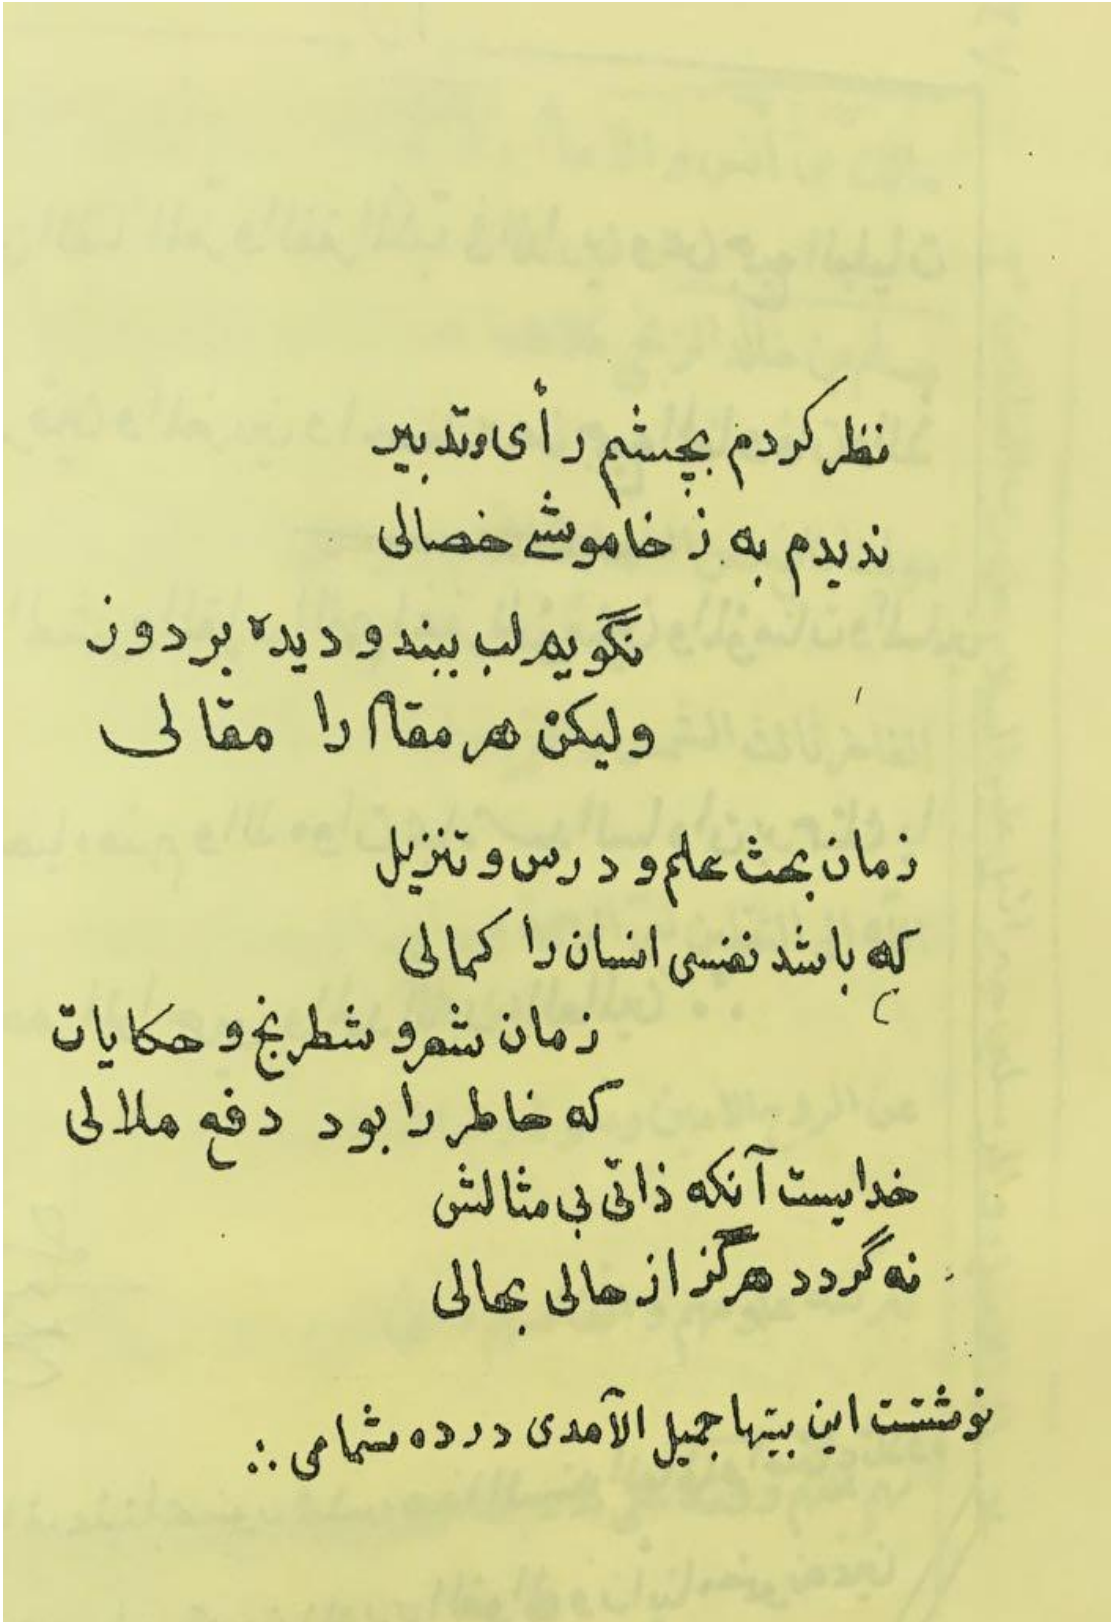 نظر کردم بچشم رأی وتدبیر
ندیدم به ز خاموشی خصالی
نگویم لب ببند و دیده بر دوز
ولیکن هر مقام را مقالی
زمان بحث علم و درس و تنزیل
که باشد نفسی انسان را کمالی
زمان شعر و شطرنج و حکایات
که خاطر را بود دفع ملالی
خدایست آنکه ذاتی بی مثالش
نه گردد هرگز از حالی بحالی
نوشتت این بیتها جمیل الآمدی در ده شمامی